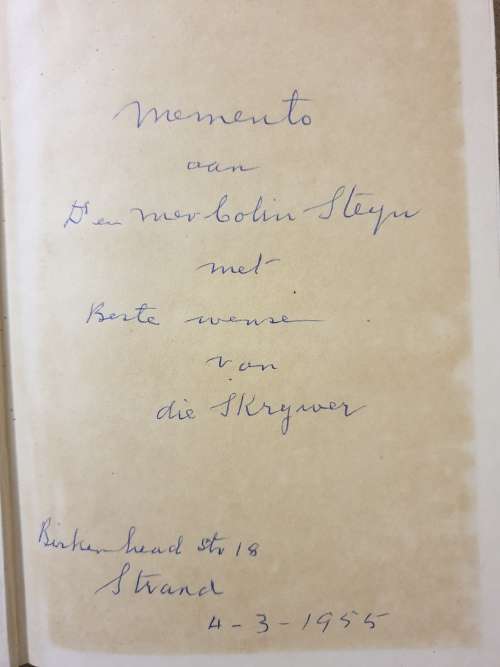 Memento
aan
Dr en mev Colin Steyn
met
Beste wense
van
die Skrywer
Birkenhead Str 18
Strand
4-3-1955